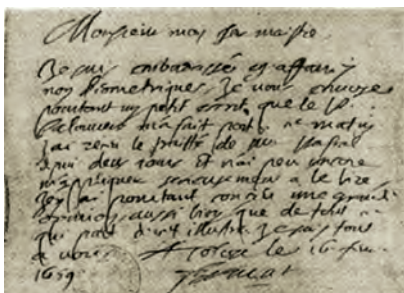 Monsieur mon cher maistre
Je suis embarrassé en affaires
non geometriques. Je vous envoye
pourtant un petit escrit que le P.
m'a fait ce matin
J'ai receu le traitté de
depuis deux jours et n'ai peu encore
m'appliquer serieusement a le lire
J'en ai pourtant conceu une grande
opinion aussi bien que de tout ce
qui part d'une illustre. Je suis tout
a vous A le 16 feu.
1659
Fermat